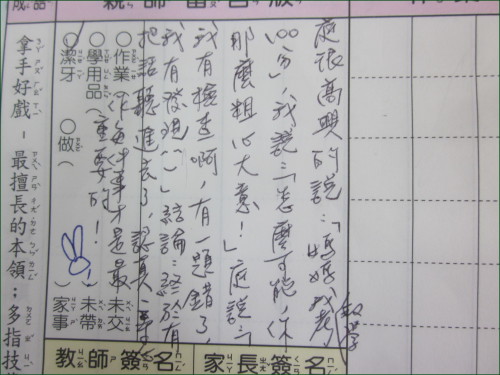 親師留言版
庭很高興的說：「媽媽我數學考
100分」，我說：「怎麼可能，你
那麼粗心大意！」庭說：「
我有檢查啊，有一題錯了，
我有發現(^^)」結論：終於有
把話聽進去了，認真
作每件事才是最
重要的！
○作業
○學用品
○潔牙
○做（
）
未交
未帶
家事
教師簽名
家長簽名
拿手好戲－最擅長的本領；多指技